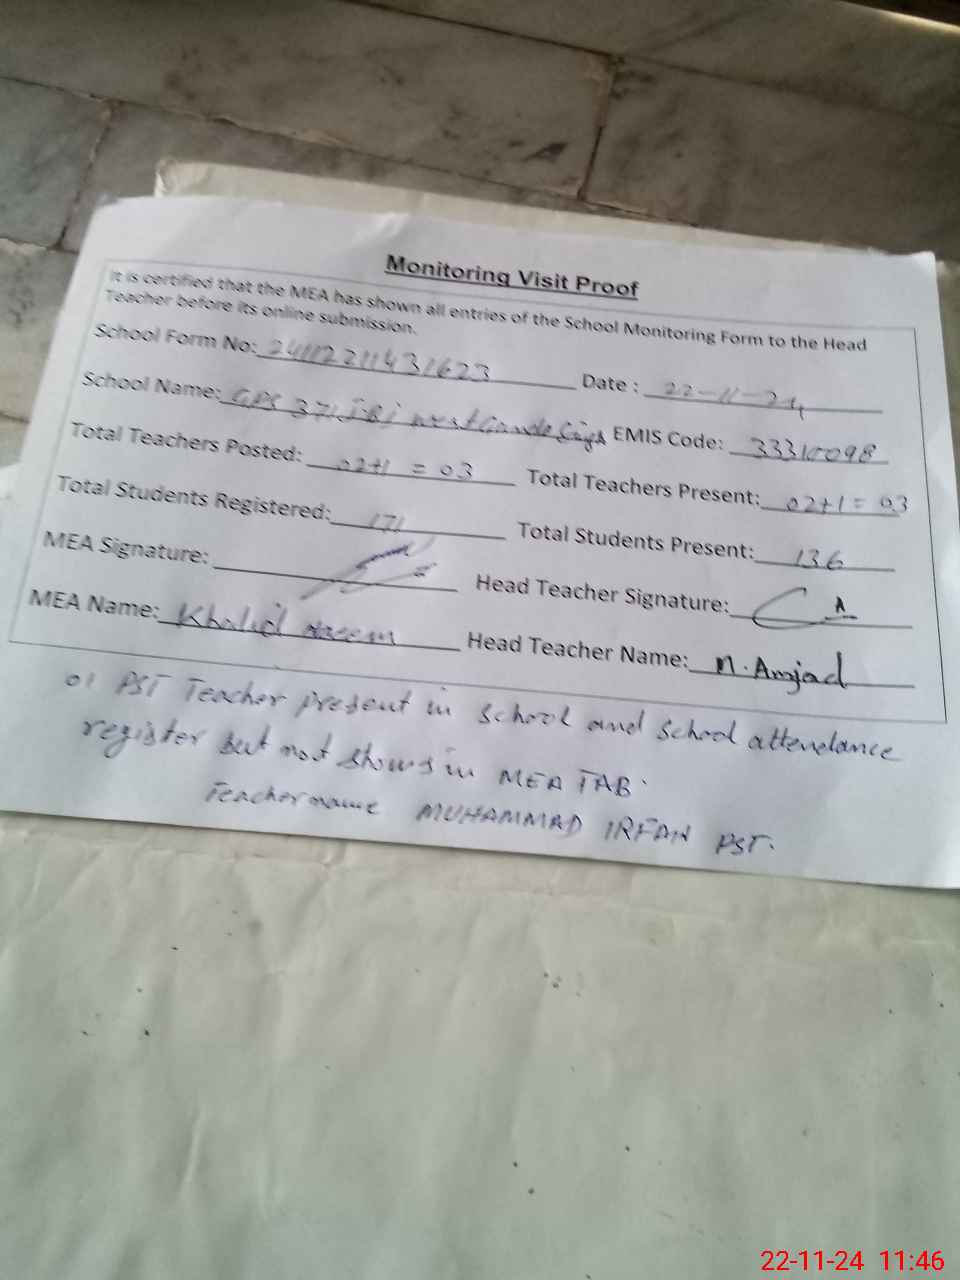 Monitoring Visit Proof
It is certified that the MEA has shown all entries of the School Monitoring Form to the Head
Teacher before its online submission.
School Form No: 24112211431623 Date : 22-11-24
School Name: GPS 371 JB Total Teachers Posted: 02+1 = 03 Total Teachers Present: 02+1 = 03
EMIS Code: 33310098
Total Students Registered: 171 Total Students Present: 136
MEA Signature: Head Teacher Signature:
MEA Name: Khalid Naeem Head Teacher Name: M. Amjad
01 PST Teacher present in school and school attendance
register but not shows in MEA TAB.
Teacher name MUHAMMAD IRFAN PST.
22-11-24 11:46